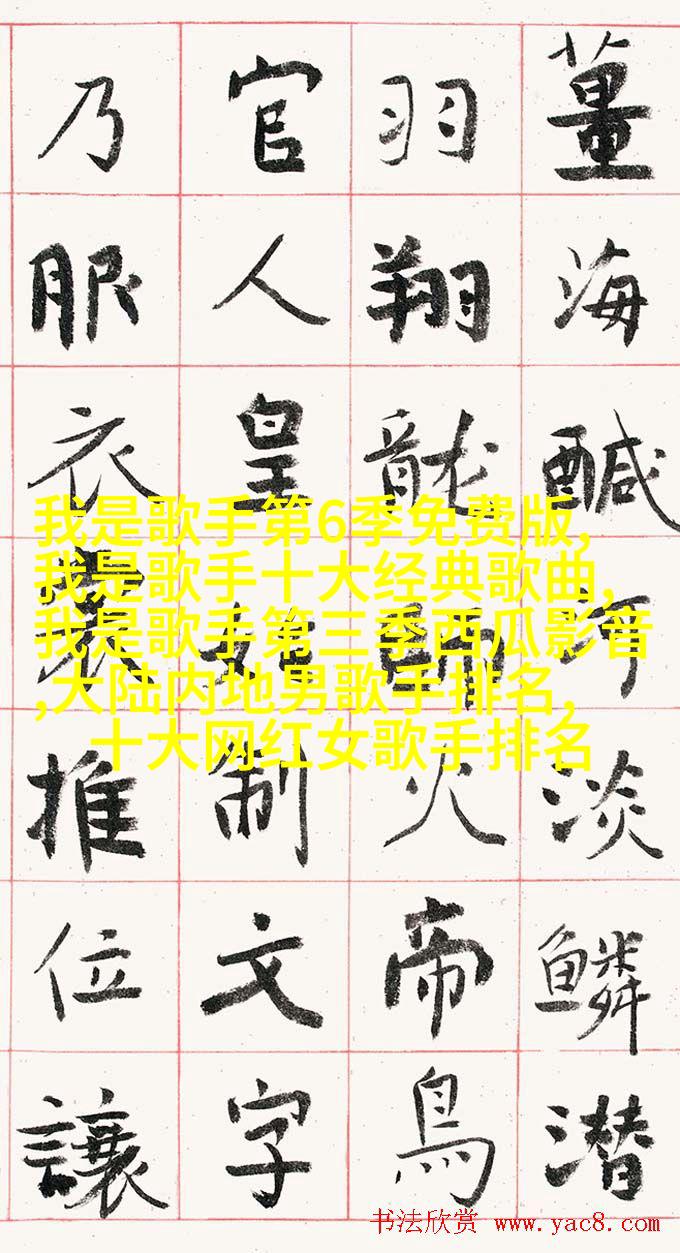 薑海醎河淡鳞潜
羽翔龍師火帝鳥
官人皇始制文字
乃服衣裳推位讓
我是歌手第6季免费版,
我是歌手十大经典歌曲,
我是歌手第三季西瓜影音
,大陆内地男歌手排名,
十大网红女歌手排名
书法欣赏 www.yac8.com